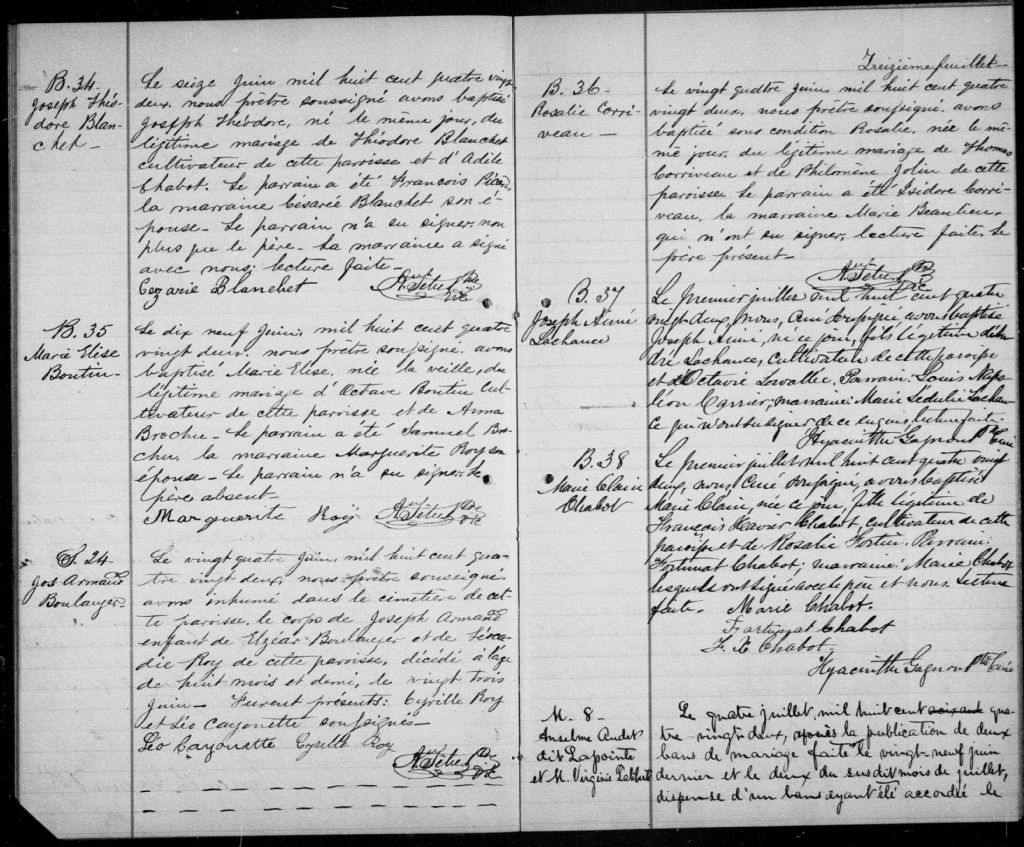 B. 34
Joseph Théo-
dore Blan-
chet -
Le seize juin mil huit cent quatre vingt
deux, nous prêtre soussigné avons baptisé
Joseph Théodore, né le même jour, du
légitime mariage de Théodore Blanchet
cultivateur de cette paroisse et d'Adèle
Chabot. Le parrain a été François Picard,
la marraine Césarée Blanchet son é-
pouse - Le parrain n'a su signer, non
plus que le père - La marraine a signé
avec nous; lecture faite -
Cezarie Blanchet
B. 35
Marie Elise
Boutin -
Le dix neuf juin, mil huit cent quatre
vingt deux, nous prêtre soussigné, avons
baptisé Marie Elise, née la veille, du
légitime mariage d'Octave Boutin cul-
tivateur de cette paroisse et de Anna
Brochu - Le parrain a été Samuel Bro-
chu, la marraine Marguerite Roy son
épouse - Le parrain n'a su signer, le
père absent -
Marguerite Roÿ
S. 24
Jos Armand
Boulanger -
Le vingt quatre juin, mil huit cent qua-
tre vingt deux, nous prêtre soussigné
avons inhumé dans le cimetière de cet-
te paroisse, le corps de Joseph Armand
enfant de Elzéar Boulanger et de Léoca-
die Roy de cette paroisse, décédé à l'age
de huit mois et demi, le vingt trois
juin - Furent présents: Cyrille Roy
et Léo Cayouette soussignés -
Léo Cayouette Cyrille Roy
Treizième feuillet -
B. 36 -
Rosalie Corri-
veau -
Le vingt quatre juin, mil huit cent quatre
vingt deux, nous prêtre soussigné, avons
baptisé sous condition Rosalie, née le mê-
me jour, du légitime mariage de Thomas
Corriveau et de Philomène Jolin de cette
paroisse. Le parrain a été Isidore Corri-
veau, la marraine Marie Beaulieu,
qui n'ont su signer, lecture faite. Le
père présent -
B. 37
Joseph Aimé
Lachance
Le premier juillet mil huit cent quatre
vingt deux, nous, curé soussigné avons baptisé
Joseph Aimé, né ce jour, fils légitime d'An-
dré Lachance, cultivateur de cette paroisse
et d'Octavie Lavallée. Parrain: Louis Napo-
léon Carrier; marraine: Marie Lachan-
ce qui n'ont su signer de ce requis. Lecture faite
Hyacinthe Gagnon Ptre Curé
B. 38
Marie Claire
Chabot
Le premier juillet mil huit cent quatre vingt
deux, nous, Curé soussigné, avons baptisé
Marie Claire, née ce jour, fille légitime de
François Xavier Chabot, cultivateur de cette
paroisse et de Rosalie Fortier. Parrain:
Fortunat Chabot; marraine: Marie Chabot
lesquels ont signé avec le père et nous. Lecture
faite - Marie Chabot.
Fortunat Chabot
F. X Chabot.
Hyacinthe Gagnon Ptre Curé
M. 8 -
Anselme Audet
dit Lapointe
et M. Virginie
Le quatre juillet, mil huit cent soixant qua-
tre - vingt-deux, après la publication de deux
bans de mariage faite le vingt-neuf juin
dernier et le deux du susdit mois de juillet,
dispense d'un ban ayant été accordée le